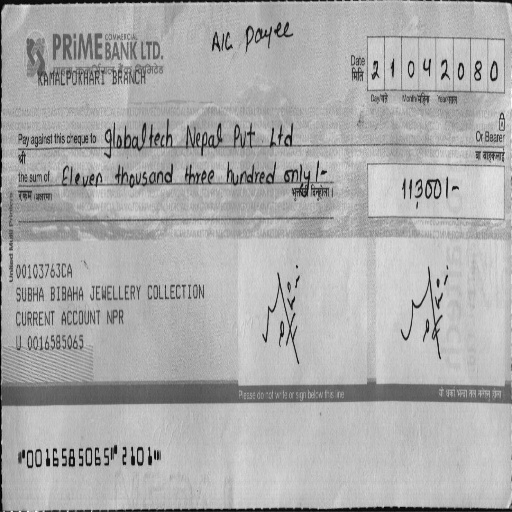 A/C Payee
PRIME COMMERCIAL BANK LTD.
KAMALPOKHARI BRANCH
Date मिति 21042080
Day/गते Month/महिना Year/साल
Pay against this cheque to Globaltech Nepal Pvt. Ltd Or Bearer
श्री वा वाहकलाई
the sum of Eleven thousand three hundred only/- 11,300/-
रकम (अक्षरमा)
00103763CA
SUBHA BIBAHA JEWELLERY COLLECTION
CURRENT ACCOUNT NPR
U 0016585065
Please do not write or sign below this line
⑈0016585065⑈ 2101⑈